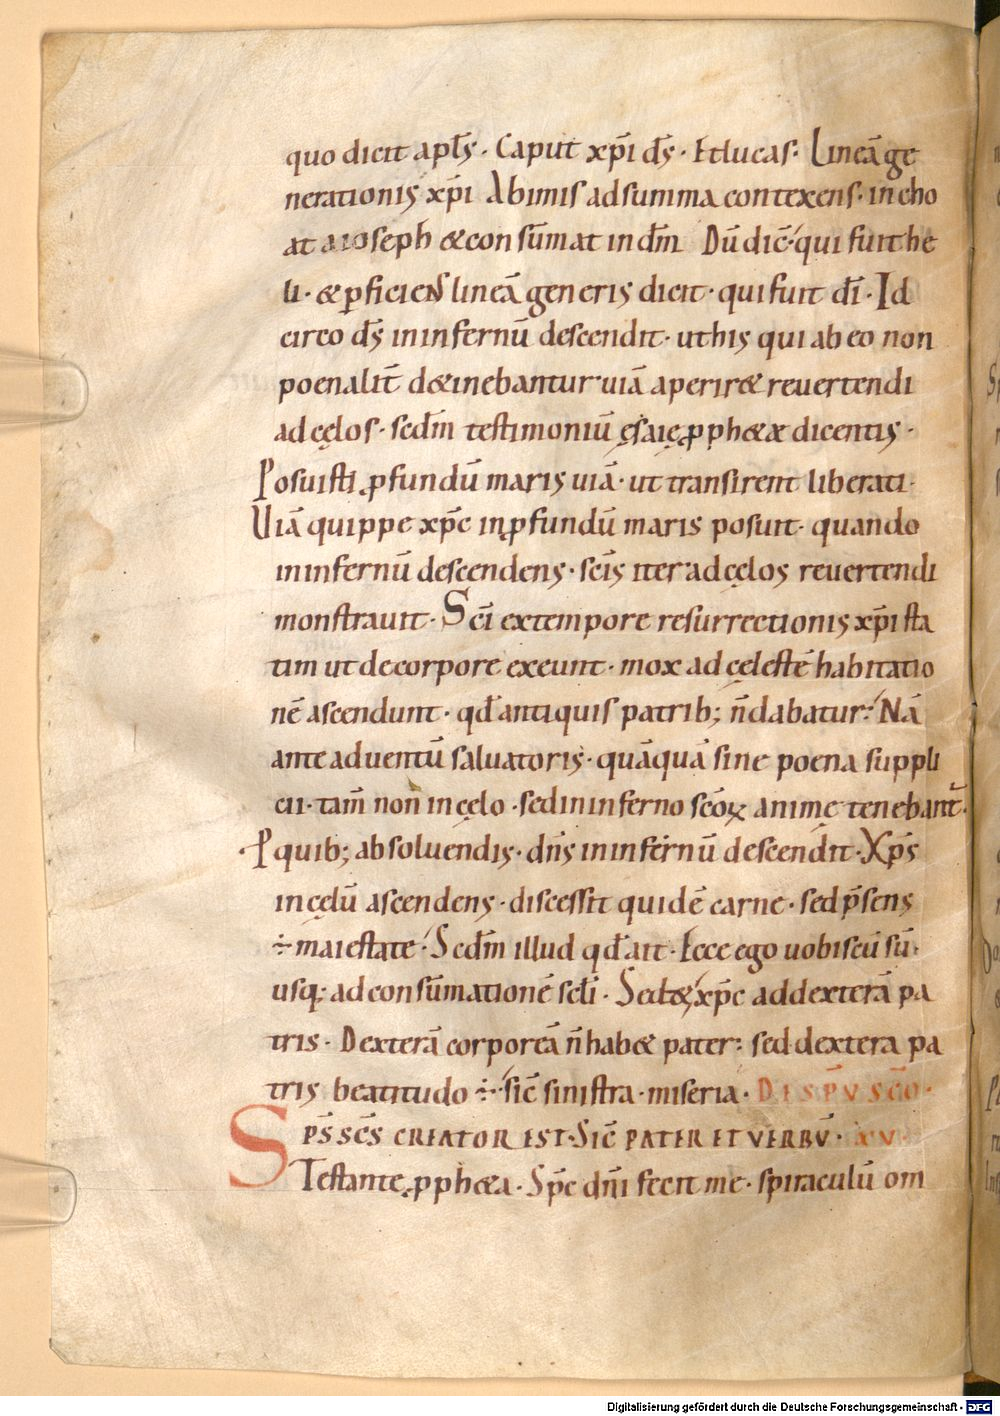 quo dicit apłs · Caput xp̄i ds̄ · Et lucas · Lineā ge
nerationis xp̄i Abimis ad summa contexens · incho
at a ioseph & consūmat in dm̄ Dū dic̄ · qui fuit he
li · & ꝑficiens lineā generis dicit · qui fuit di̅ · Id
circo ds̄ in infernū descendit · ut his qui ab eo non
poenalit̄ d&inebantur uiā aperir& reuertendi
ad cęlos · scdm̄ testimoniū ęsaię ꝓph&æ dicentis ·
Posuisti ꝓfundū maris uiā · ut transirent liberati ·
Uiā quippe xp̄c in ꝓfundū maris posuit · quando
in infernū descendens · sc̄is iter ad cęlos reuertendi
monstrauit · Sc̄i ex tempore resurrectionis xp̄i sta
tim ut de corpore exeunt · mox ad cęlestē habitatio
nē ascendunt · qđ antiquis patrib; n̄ dabatur · Nā
ante aduentū saluatoris · quāquā sine poena suppli
cii · tam̄ non in cęlo · sed in inferno sc̄oꝝ animę tenebant̄ ·
· P quib; absoluendis · dn̄s in infernū descendit · Xp̄s
in cęlū ascendens · discessit quidē carne · sed p̄sens
÷ maiestate · Scdm̄ illud qđ ait · Ecce ego uobiscū sū ·
usq; ad consūmationē scłi · Sed& xp̄c ad dexterā pa
tris · Dexterā corporeā n̄ hab& pater · sed dextera pa
tris beatitudo ÷ · sic̄ sinistra · miseria · DE SP̄U SC̄O ·
SPS̄ SC̄S CREATOR EST · SIC̄ PATER ET VERBV̄ · XV ·
Testante ꝓph&a · Sp̄c dn̄i fecit me · spiraculū om
Digitalisierung gefördert durch die Deutsche Forschungsgemeinschaft · DFG